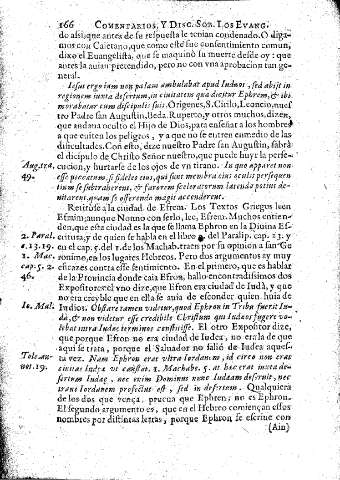 166 COMENTARIOS, Y DISC. SOB. LOS EVANG.
do assi, que antes de se respuesta le tenian condenado. O diga-
mos con Caietano, que como este fue consentimiento comun,
dixo el Euangelista, que se maquinò su muerte desde oy: que
antes la auian pretendido, pero no con vna aprobacion tan ge-
neral.
Iesus ergo iam non palam ambulabat apud Iudæos, sed abijt in
regionem iuxta desertum, in ciuitatem quæ dicitur Ephrem, & ibi
morabatur cum discipulis suis. Origenes, S. Cirilo, Leoncio, nues
tro Padre san Augustin, Beda, Ruperto, y otros muchos, dizen,
que andaua oculto el Hijo de Dios, para enseñar a los hombres
a que euiten los peligros, y a que no se entren enmedio de las
dificultades. Con esto, dize nuestro Padre san Augustin, sabrà
el dicipulo de Christo Señor nuestro, que puede huyr la perse-
Aug. tra. cucion, y hurtarse de los ojos de vn titano. In quo apparet non
49. esse peccatum, si fideles eius, qui sunt membra eius oculis persequen
tium se subtraherent, & furorem sceleratorum latendo potius de-
uitarent, quam se offerendo magis accenderent.
Retirose a la ciudad de Efrem. Los Textos Griegos leen
Efraim, aunque Nonno con serlo, lee, Efrem. Muchos entien-
den, que esta ciudad es la que se llama Ephron en la Diuina Es-
2. Paral. critura, y de quien se habla en el libro 2. del Paralip. cap. 13. y
c. 13. 19. en el cap. 5. del 1. de los Machab. traen por su opinion a san Ge
1. Mac. ronimo, en los lugares Hebreos. Pero dos argumentos ay muy
cap. 5. 2. eficazes contra este sentimiento. En el primero, que es hablar
46. de la Prouincia donde caia Efron, hallo encontradisimos dos
Expositores el vno dize, que Efron era ciudad de Iudà, y que
no era creyble que en ella se auia de esconder quien huia de
Io. Mal. Iudios. Obstare tamen videtur, quod Ephron in Tribu fuerit Iu-
dà, & non videtur esse credibile Christum qui Iudæos fugere vo-
lebat intra Iudææ terminos consuisse. El otro Expositor dize,
que porque Efron no era ciudad de Iudea, no era la de que
aqui se trata, porque el Saluador no salió de Iudea aques-
Tole. an- ta vez. Nam Ephron erat vltra Iordanem, id circo non erat
not. 19. ciuitas Iudææ vt constat. 1. Machab. 5. at hæc erat iuxta de-
sertum Iudææ, nec enim Dominus nunc Iudæam deseruit, nec
trans Iordanem profectus est, sed in desertum. Qualquiera
de los dos que vença, prueua que Ephren, no es Ephron.
El segundo argumento es, que en el Hebreo comiençan essos
nombres por distintas letras, porque Ephron se escriue con
(Ain)